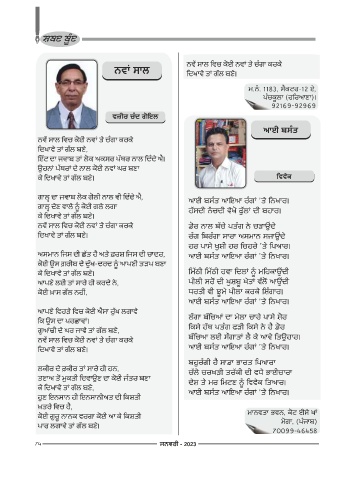 ਸ਼ਬਦ ਬੂੰਦ
ਨਵਾਂ ਸਾਲ
ਵਜ਼ੀਰ ਚੰਦ ਗੋਇਲ
ਨਵੇਂ ਸਾਲ ਵਿਚ ਕੋਈ ਨਵਾਂ ਤੇ ਚੰਗਾ ਕਰਕੇ
ਦਿਖਾਵੋ ਤਾਂ ਗੱਲ ਬਣੇ,
ਇੱਟ ਦਾ ਜਵਾਬ ਤਾਂ ਲੋਕ ਅਕਸਰ ਪੱਥਰ ਨਾਲ ਦਿੰਦੇ ਐ।
ਉਹਨਾਂ ਪੱਥਰਾਂ ਦੇ ਨਾਲ ਕੋਈ ਨਵਾਂ ਘਰ ਬਣਾ
ਕੇ ਦਿਖਾਵੋ ਤਾਂ ਗੱਲ ਬਣੇ।
ਗਾਲ੍ਹ ਦਾ ਜਵਾਬ ਲੋਕ ਗੋਲੀ ਨਾਲ ਵੀ ਦਿੰਦੇ ਐ,
ਗਾਲ੍ਹ ਦੇਣ ਵਾਲੇ ਨੂੰ ਕੋਈ ਗਲੇ ਲਗਾ
ਕੇ ਦਿਖਾਵੋ ਤਾਂ ਗੱਲ ਬਣੇ।
ਨਵੇਂ ਸਾਲ ਵਿਚ ਕੋਈ ਨਵਾਂ ਤੇ ਚੰਗਾ ਕਰਕੇ
ਦਿਖਾਵੋ ਤਾਂ ਗੱਲ ਬਣੇ।
ਅਸਮਾਨ ਜਿਸ ਦੀ ਛੱਤ ਹੈ ਅਤੇ ਫ਼ਰਸ਼ ਜਿਸ ਦੀ ਚਾਦਰ,
ਕੋਈ ਉਸ ਗਰੀਬ ਦੇ ਦੁੱਖ-ਦਰਦ ਨੂੰ ਆਪਣੀ ਤੜਪ ਬਣਾ
ਕੇ ਦਿਖਾਵੋ ਤਾਂ ਗੱਲ ਬਣੇ।
ਆਪਣੇ ਲਈ ਤਾਂ ਸਾਰੇ ਹੀ ਕਰਦੇ ਨੇ,
ਕੋਈ ਖ਼ਾਸ ਗੱਲ ਨਹੀਂ,
ਆਪਣੇ ਵਿਹੜੇ ਵਿਚ ਕੋਈ ਐਸਾ ਰੁੱਖ ਲਗਾਵੋ
ਕਿ ਉਸ ਦਾ ਪਰਛਾਵਾਂ
ਗੁਆਂਢੀ ਦੇ ਘਰ ਜਾਵੇ ਤਾਂ ਗੱਲ ਬਣੇ,
ਨਵੇਂ ਸਾਲ ਵਿਚ ਕੋਈ ਨਵਾਂ ਤੇ ਚੰਗਾ ਕਰਕੇ
ਦਿਖਾਵੋ ਤਾਂ ਗੱਲ ਬਣੇ।
ਲਕੀਰ ਦੇ ਫ਼ਕੀਰ ਤਾਂ ਸਾਰੇ ਹੀ ਹਨ,
ਤਣਾਅ ਤੋਂ ਮੁਕਤੀ ਦਿਵਾਉਣ ਦਾ ਕੋਈ ਜੰਤਰ ਬਣਾ
ਕੇ ਦਿਖਾਵੋ ਤਾਂ ਗੱਲ ਬਣੇ,
ਹੁਣ ਇਨਸਾਨ ਹੀ ਇਨਸਾਨੀਅਤ ਦੀ ਕਿਸ਼ਤੀ
ਖ਼ਤਰੇ ਵਿਚ ਹੈ,
ਕੋਈ ਗੁਰੂ ਨਾਨਕ ਵਰਗਾ ਕੋਈ ਆ ਕੇ ਕਿਸ਼ਤੀ
ਪਾਰ ਲਗਾਵੇ ਤਾਂ ਗੱਲ ਬਣੇ।
ਨਵੇਂ ਸਾਲ ਵਿਚ ਕੋਈ ਨਵਾਂ ਤੇ ਚੰਗਾ ਕਰਕੇ
ਦਿਖਾਵੋ ਤਾਂ ਗੱਲ ਬਣੇ।
ਮ.ਨੰ. 1183, ਸੈਕਟਰ-12 ਏ,
ਪੰਚਕੂਲਾ (ਹਰਿਆਣਾ)।
92169-92969
ਆਈ ਬਸੰਤ
ਵਿਵੇਕ
ਆਈ ਬਸੰਤ ਆਇਆ ਰੰਗਾਂ 'ਤੇ ਨਿਖਾਰ।
ਹੱਸਦੀ ਨੱਚਦੀ ਵੇਖੋ ਫੁੱਲਾਂ ਦੀ ਬਹਾਰ।
ਡੋਰ ਨਾਲ ਬੱਚੇ ਪਤੰਗ ਨੇ ਚੜਾਉਂਦੇ
ਰੰਗ ਬਿਰੰਗਾ ਸਾਰਾ ਅਸਮਾਨ ਸਜਾਉਂਦੇ
ਹਰ ਪਾਸੇ ਖੁਸ਼ੀ ਹਰ ਚਿਹਰੇ 'ਤੇ ਪਿਆਰ।
ਆਈ ਬਸੰਤ ਆਇਆ ਰੰਗਾਂ 'ਤੇ ਨਿਖਾਰ।
ਮਿੱਠੀ ਮਿੱਠੀ ਹਵਾ ਦਿਲਾਂ ਨੂੰ ਮਹਿਕਾਉਂਦੀ
ਪੀਲੀ ਸਰੋਂ ਦੀ ਖ਼ੁਸ਼ਬੂ ਖੇਤਾਂ ਵੱਲੋਂ ਆਉਂਦੀ
ਧਰਤੀ ਵੀ ਝੂਮੇ ਪੀਲਾ ਕਰਕੇ ਸ਼ਿੰਗਾਰ।
ਆਈ ਬਸੰਤ ਆਇਆ ਰੰਗਾਂ 'ਤੇ ਨਿਖਾਰ।
ਲੱਗਾ ਬੱਚਿਆਂ ਦਾ ਮੇਲਾ ਚਾਰੇ ਪਾਸੇ ਸ਼ੋਰ
ਕਿਸੇ ਹੱਥ ਪਤੰਗ ਫੜੀ ਕਿਸੇ ਨੇ ਹੈ ਡੋਰ
ਬੱਚਿਆਂ ਲਈ ਸੌਗਾਤਾਂ ਲੈ ਕੇ ਆਵੇ ਤਿਉਹਾਰ।
ਆਈ ਬਸੰਤ ਆਇਆ ਰੰਗਾਂ 'ਤੇ ਨਿਖਾਰ।
ਬਹੁਰੰਗੀ ਹੈ ਸਾਡਾ ਭਾਰਤ ਪਿਆਰਾ
ਚੱਲੇ ਚਰਖੜੀ ਤਰੱਕੀ ਦੀ ਵਧੇ ਭਾਈਚਾਰਾ
ਦੇਸ਼ ਤੇ ਮਰ ਮਿਟਣ ਨੂੰ ਵਿਵੇਕ ਤਿਆਰ।
ਆਈ ਬਸੰਤ ਆਇਆ ਰੰਗਾਂ 'ਤੇ ਨਿਖਾਰ।
ਮਾਨਵਤਾ ਭਵਨ, ਕੋਟ ਈਸੇ ਖਾਂ
ਮੋਗਾ, (ਪੰਜਾਬ)
70099-46458
74
ਜਨਵਰੀ - 2023